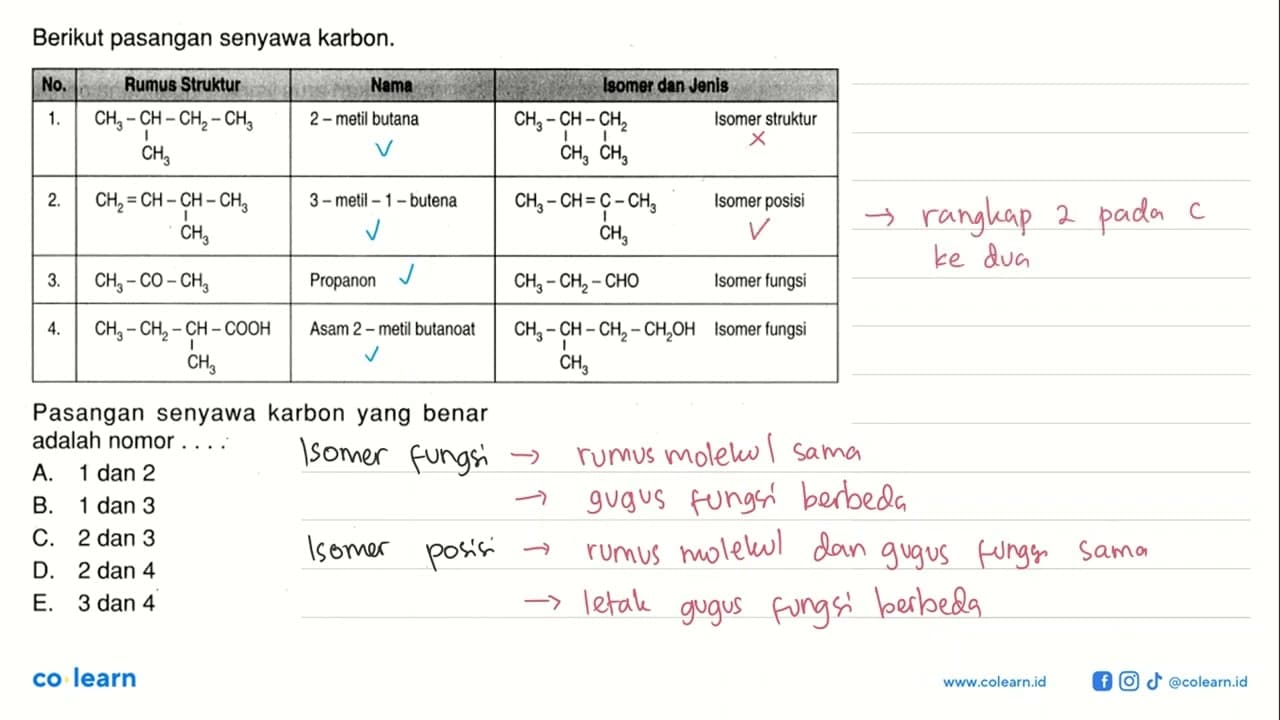 Berikut pasangan senyawa karbon.
No. Rumus Struktur Nama Isomer dan Jenis
1. CH₃ – CH – CH₂ – CH₃ 2 – metil butana CH₃ – CH – CH₂ Isomer struktur
CH₃ CH₃ CH₃
2. CH₂ = CH – CH – CH₃ 3 – metil – 1 – butena CH₃ – CH = C – CH₃ Isomer posisi
CH₃ CH₃
→ rangkap 2 pada C
ke dua
3. CH₃ – CO – CH₃ Propanon CH₃ – CH₂ – CHO Isomer fungsi
4. CH₃ – CH₂ – CH – COOH Asam 2 – metil butanoat CH₃ – CH – CH₂ – CH₂OH Isomer fungsi
CH₃ CH₃
Pasangan senyawa karbon yang benar
adalah nomor . . . .
A. 1 dan 2
B. 1 dan 3
C. 2 dan 3
D. 2 dan 4
E. 3 dan 4
Isomer fungsi → rumus molekul sama
→ gugus fungsi berbeda
Isomer posisi → rumus molekul dan gugus fungsi sama
→ letak gugus fungsi berbeda
co learn
www.colearn.id @colearn.id